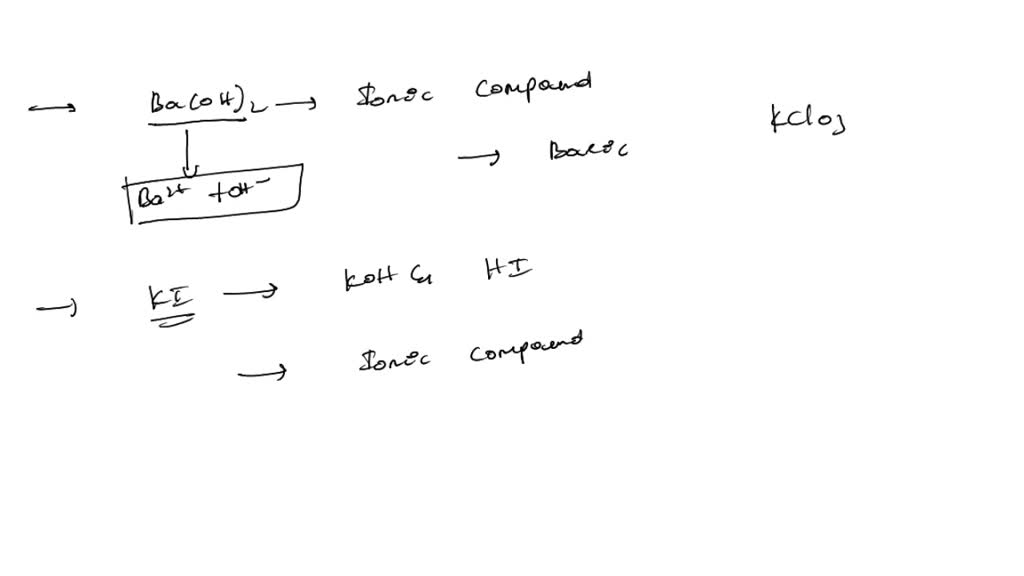 → Ba(OH)2 → Ionic Compound
KClO3
→ Basic
Ba2+ + OH-
→ KI → KOH & HI
→ Ionic compound